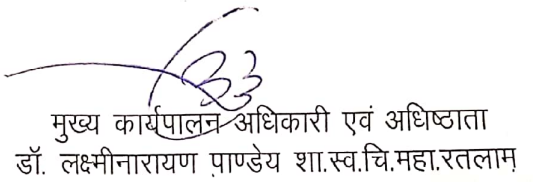 मुख्य कार्यपालन अधिकारी एवं अधिष्ठाता
डॉ. लक्ष्मीनारायण पाण्डेय शा.स्व.चि.महा.रतलाम